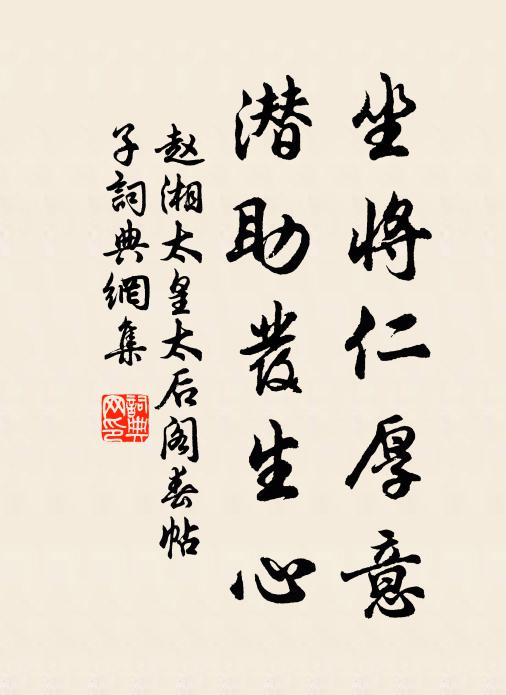 坐将仁厚意
潜助發生心
赵湘太皇太后阁春帖
子詞典網集
詞典
网印